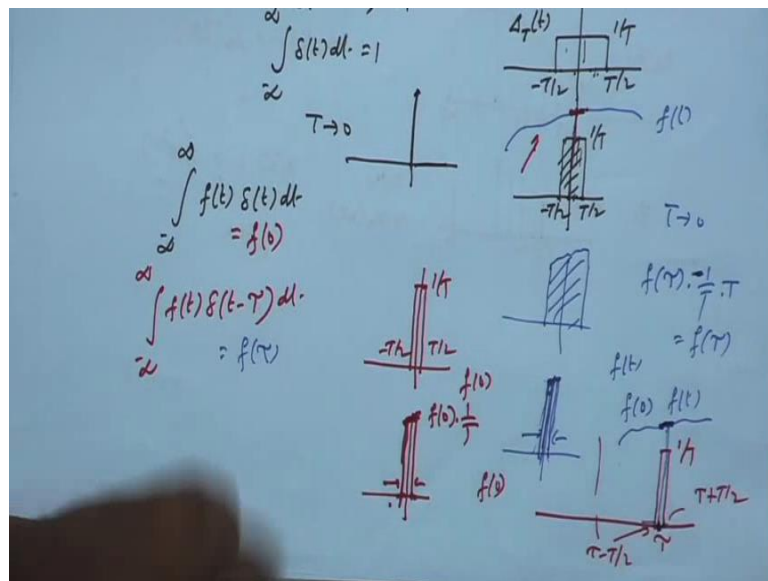 ∫ δ(t) dt = 1
-∞
Δ_T(t)
1/T
-T/2
T/2
T→0
f(t)
1/T
-T/2 T/2
T→0
∞
∫ f(t) δ(t) dt
-∞
= f(0)
∞
∫ f(t) δ(t-τ) dt
-∞
= f(τ)
1/T
-T/2 T/2
f(0)
f(0)·1/T
f(0)
f(τ)·1/T·T
= f(τ)
f(t)
f(0) f(t)
1/T
τ+T/2
τ-T/2
τ